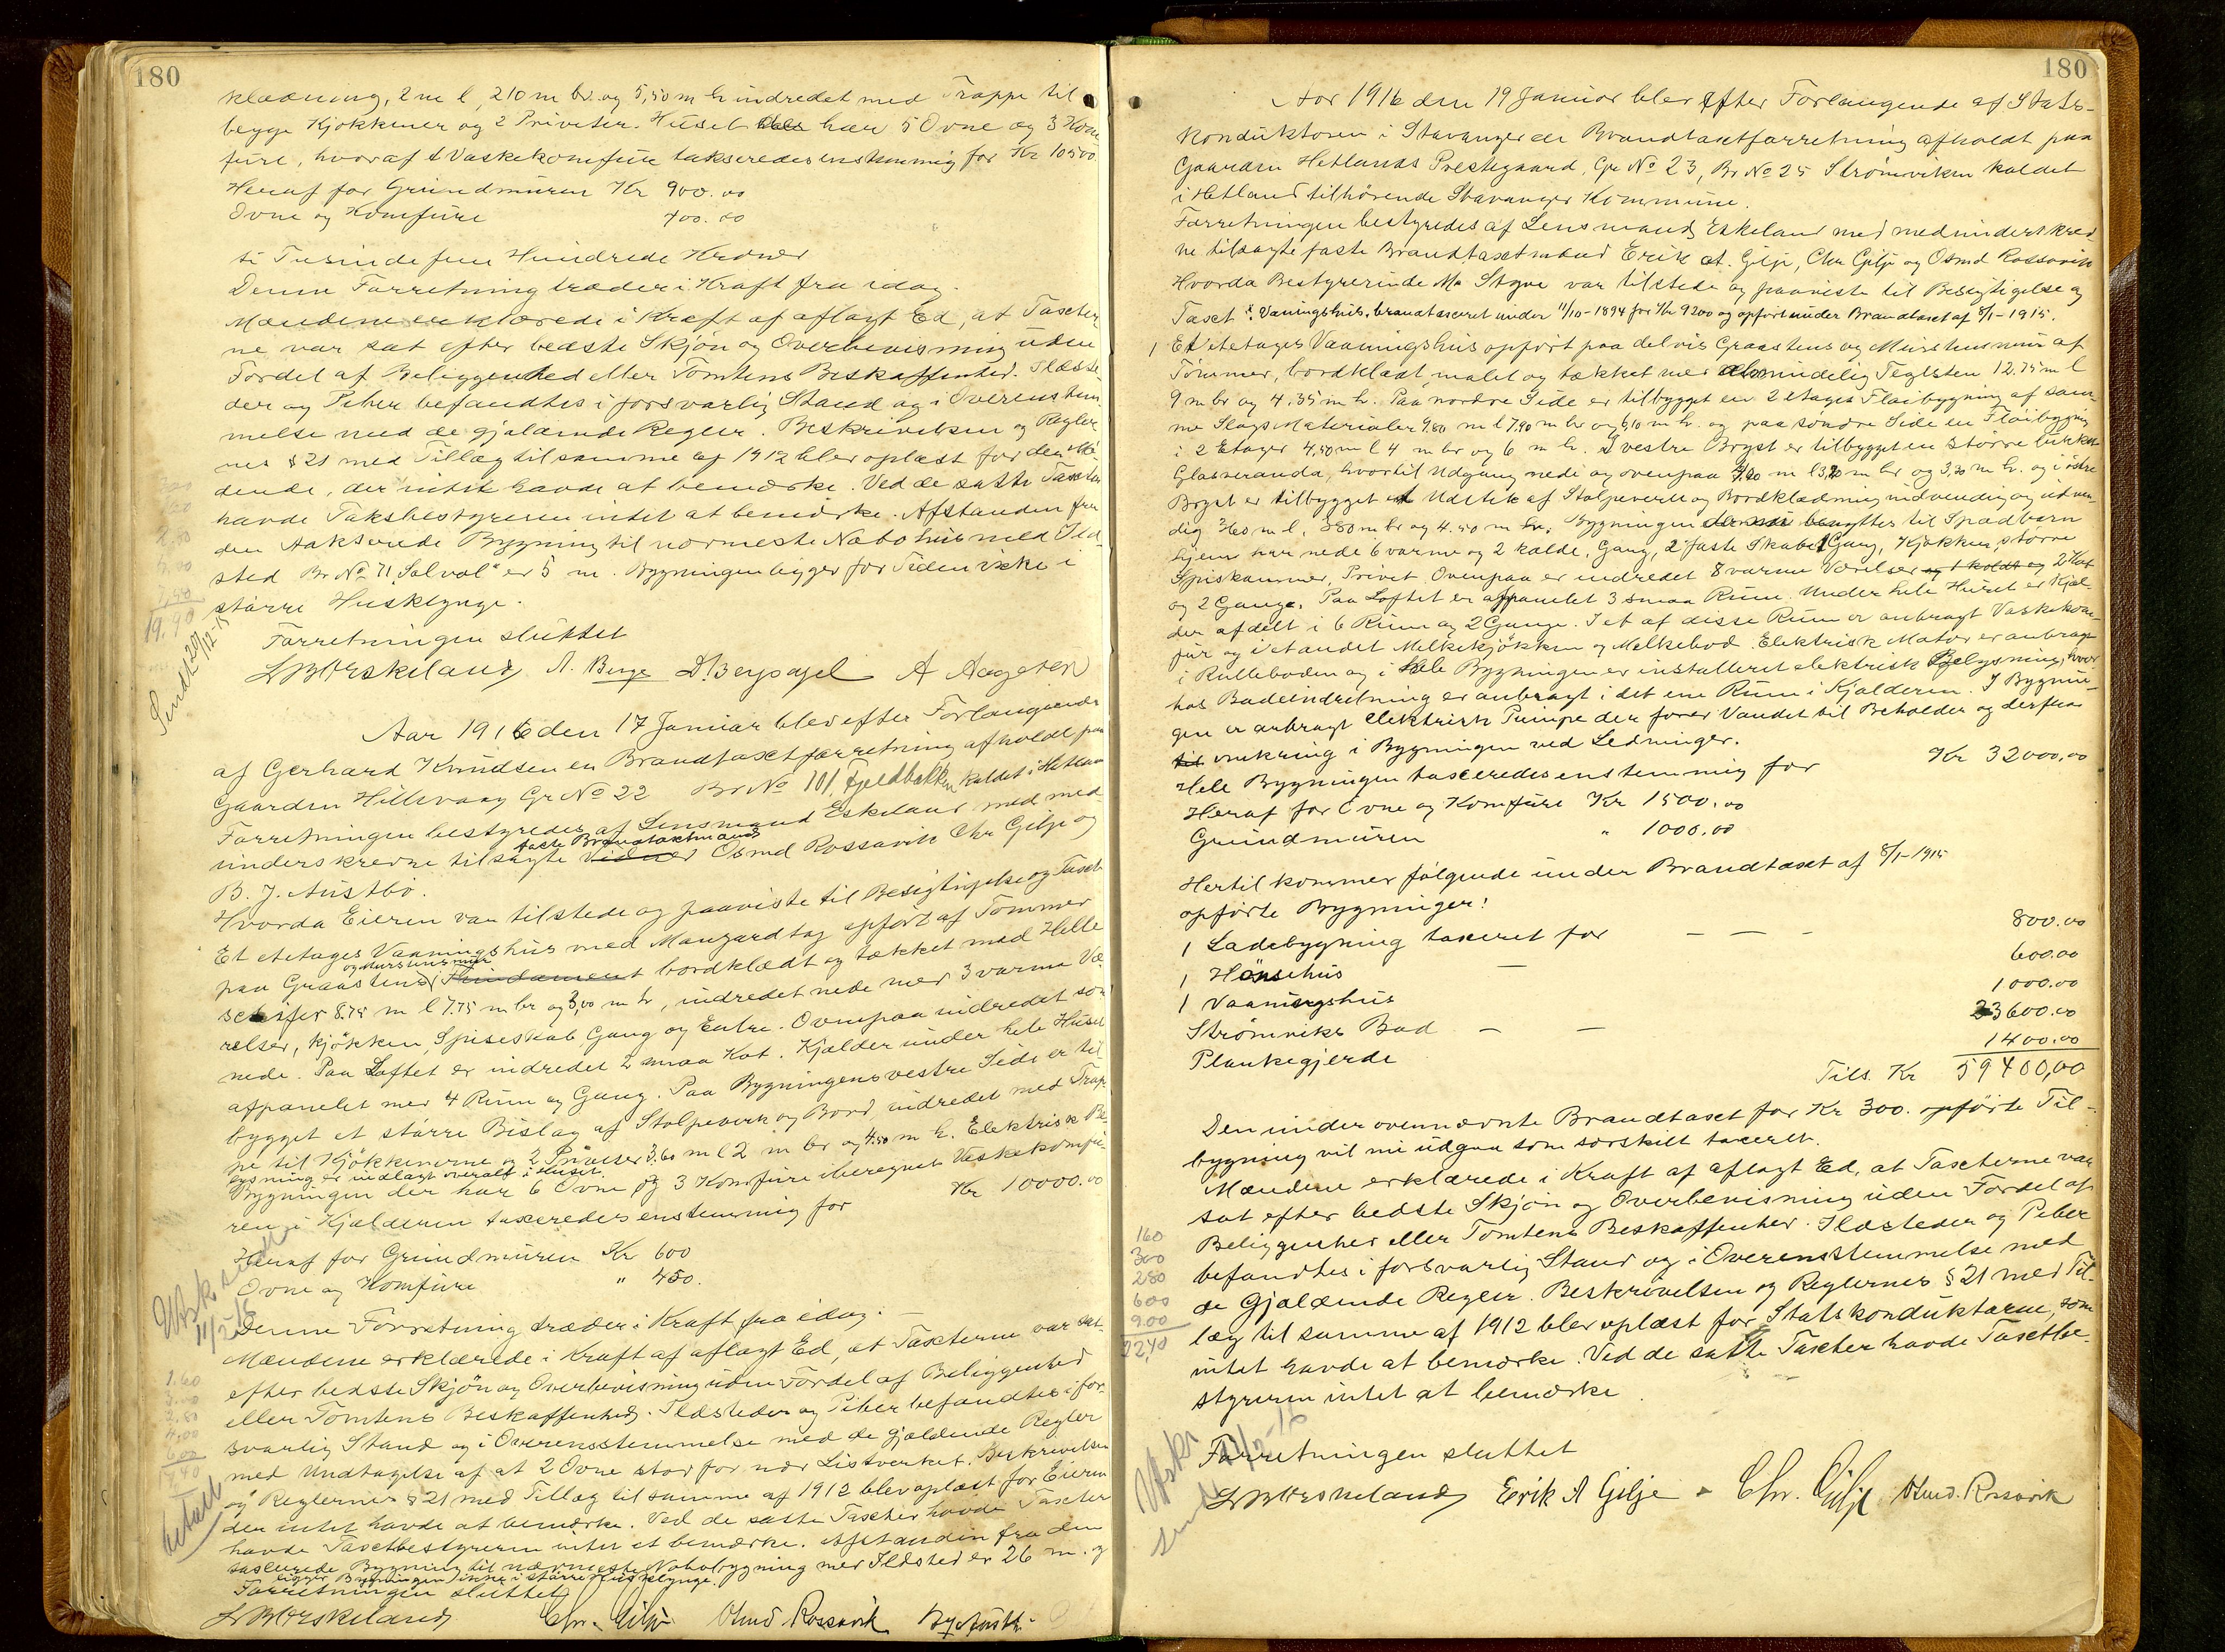 180
klædning, 2 m l, 210 m br. og 5,50 m h indredet med Trappe til
begge Kjøkkener og 2 Priveter. Huset har 5 Ovne og 3 Kom
fure, hvoraf 1 Vaskekomfur takseredes enstemmig for Kr 10500
Heraf for Grundmuren Kr 900.00
Ovne og Komfure 400.00
ti Tusinde fem Hundrede Kroner
Denne Forretning træder i Kraft fra idag.
Mændene erklærede i Kraft af aflagt Ed, at Taxter
ne var sat efter bedste Skjøn og Overbevisning uden
Fordel af Beliggenhed eller Tomtens Beskaffenhed. Ildste
der og Piber befandtes i forsvarlig Stand og i Overenstem
melse med de gjældende Regler. Beskrivelsen og Regler
nes § 21 med Tillæg til samme af 1912 blev oplæst for den Mø
dende, der intet havde at bemærke. Ved de satte Taxter
havde Taksbestyreren intet at bemærke. Afstanden fra
den takserede Bygning til nærmeste Nabohus med Ild
sted Br No 71 "Solvol" er 5 m. Bygningen ligger for Tiden ikke i
større Husklynge.
Forretningen sluttet
L B Eskeland A. Berge D. Bersagel A Aageten
Sendt 20/12-15
19,90
Aar 1916 den 17 Januar blev efter Forlangende
af Gerhard Knudsen en Brandtaxtforretning afholdt paa
Gaarden Hillevaag Gr No 22 Br No 101, Fjeldbakken kaldet i Hetland
Forretningen bestyredes af Lensmand Eskeland med med
underskrevne tilsagte faste Brandtaxtmænd Osmd Rossavik Chr Gilje og
B. J. Austbø.
Hvorda Eieren var tilstede og paaviste til Besigtigelse og Taxt
Et etetages Vaaningshus med Mangardtag opført af Tømmer
paa Graastens og Murstensmur bordklædt og tækket med Helle
schifer 8.75 m l 7.75 m br og 3,00 m h, indredet nede med 3 varme Væ
relser, kjøkken, Spiseskab Gang og Entre. Ovenpaa indredet som
nede. Paa Loftet er indredet 2 smaa Kot. Kjælder under hele Huset
afpanelet med 4 Rum og Gang. Paa Bygningens vestre Side er til
bygget et større Bislag af Stolpeverk og Bord, indredet med Trap
pe til Kjøkkenerne og 2 Priveter 3.60 m l 2 m br og 4.50 m h. Elektrisk Be
lysning er indlagt overalt i Huset
Bygningen der har 6 Ovne og 3 Komfure iberegnet Vaskekomfu
ren i Kjælderen taxeredes enstemmig for Kr 10000.00
Heraf for Grundmuren Kr 600
Ovne og Komfure " 450.
Denne Forretning træder i Kraft fra idag.
Mændene erklærede i Kraft af aflagt Ed, at Taxterne var sat
efter bedste Skjøn og Overbevisning uden Fordel af Beliggenhed
eller Tomtens Beskaffenhed. Ildsteder og Piber befandtes i for
svarlig Stand og i Overensstemmelse med de gjældende Regler
med Undtagelse af at 2 Ovne stod for nær Listverket. Beskrivelsen
og Reglernes § 21 med Tillæg til samme af 1912 blev oplæst for Eieren
der intet havde at bemærke. Ved de satte Taxter havde
havde Taxtbestyreren intet at bemærke. Afstanden fra den
taxerede Bygning til nærmeste Nabobygning med Ildsted er 26 m. og
ligger Bygningen ikke i større Husklynge.
Forretningen sluttet
L B Eskeland Chr. Gilje Osmd Rossavik B J Austbø
1.60
4,00
600
betalt
180
Aar 1916 den 19 Januar blev efter Forlangende af Stats-
konduktøren i Stavanger en Brandtaxtforretning afholdt paa
Gaarden Hetlands Prestegaard, Gr No 23, Br No 25 Strømviken kaldet
i Hetland tilhørende Stavanger Kommune.
Forretningen bestyredes af Lensmand Eskeland med medunderskrev
ne tilsagte faste Brandtaxtmænd Erik A. Gilje, Chr Gilje og Osmd Rossavik
Hvorda Bestyrerinde M. Stgve var tilstede og paaviste til Besigtigelse og
Taxt: Vaaningshus, brandtaxeret under 11/10-1894 for Kr 9200 og opført under Brandtaxt af 8/1-1915.
1 Et etetages Vaaningshus opført paa delvis Graastens og Murstensmur af
Tømmer, bordklædt, malet og tækket med almindelig Teglsten 12.75 m l
9 m br og 4.35 m h. Paa nordre Side er tilbygget en 2 etages Fløibygning af sam
me Slags Materialer 9.80 m l 7,90 m br og 6,10 m h. og paa søndre Side en Fløibygning
i 2 Etager 4,50 m l 4 m br og 6 m h. I vestre Bryst er tilbygget en større
Glasveranda, hvortil Udgang nede og ovenpaa 4.20 m l 3,20 m br og 3,20 m h. og i østre
Bryst er tilbygget et Udstik af Stolpeverk og Bordklædning indvendig og udven
dig 3.60 m l, 3.80 m br og 4.50 m h. Bygningen benyttes til Spædbarn
hjem har nede 6 varme og 2 kolde, Gang, 2 faste Skabe 1 Gang, Kjøkken, større
Spiskammer, Privet. Ovenpaa er indredet 8 varme Værelser og 1 koldt og 2 Kot
og 2 Gange. Paa Loftet er afpanelet 3 smaa Rum. Under hele Huset er Kjæl
der afdelt i 6 Rum og 2 Gange. I et af disse Rum er anbragt Vaskekom
fur og i et andet Melkekjøkken og Melkebod. Elektrisk Motor er anbragt
i Rulleboden og i hele Bygningen er installeret elektrisk Belysning, hvor
hos Badeindretning er anbragt i det ene Rum i Kjælderen. I Bygnin-
gen er anbragt Elektrisk Pumpe der fører Vandet til Beholder og derfra
til omkring i Bygningen ved Ledninger.
Hele Bygningen taxeredes enstemmig for Kr 32000,00
Heraf for Ovne og Komfure Kr 1500.00
Grundmuren " 1000.00
Hertil kommer følgende under Brandtaxt af 8/1-1915
opførte Bygninger:
1 Ladebygning taxeret for — — — 800.00
1 Hønsehus — 600.00
1 Vaaningshus 1000.00
Strømviks Bad — — 23600.00
Plankegjerde 1400.00
Tils. Kr 59400,00
Den under ovennævnte Brandtaxt for Kr 300. opførte Til-
bygning vil nu udgaa som særskilt taxeret.
Mændene erklærede i Kraft af aflagt Ed, at Taxterne var
sat efter bedste Skjøn og Overbevisning uden Fordel af
Beliggenhed eller Tomtens Beskaffenhed. Ildsteder og Peber
befandtes i forsvarlig Stand og i Overensstemmelse med
de Gjældende Regler. Beskrivelsen og Reglernes § 21 med Til-
læg til samme af 1912 blev oplæst for Statskonduktøren, som
intet havde at bemærke. Ved de satte Taxter havde Taxtbe-
styreren intet at bemærke.
Forretningen sluttet
L B Eskeland Erik A Gilje Chr. Gilje Osmd. Rossavik
160
300
280
600
9.00
22,40